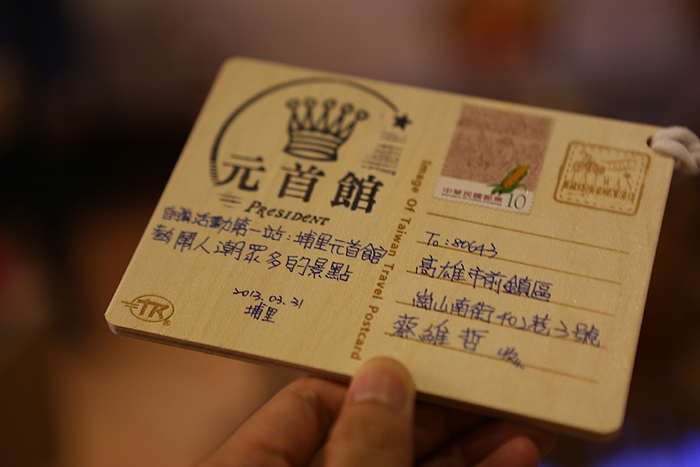 元首館
PRESIDENT
自強活動第一站:埔里元首館
熱鬧人潮眾多的景點
2013.03.31
埔里
TR
Image Of Taiwan Travel Postcard
中華民國郵票
10
To:80643
高雄市前鎮區
崗山南街402巷3號
蔡維哲 收